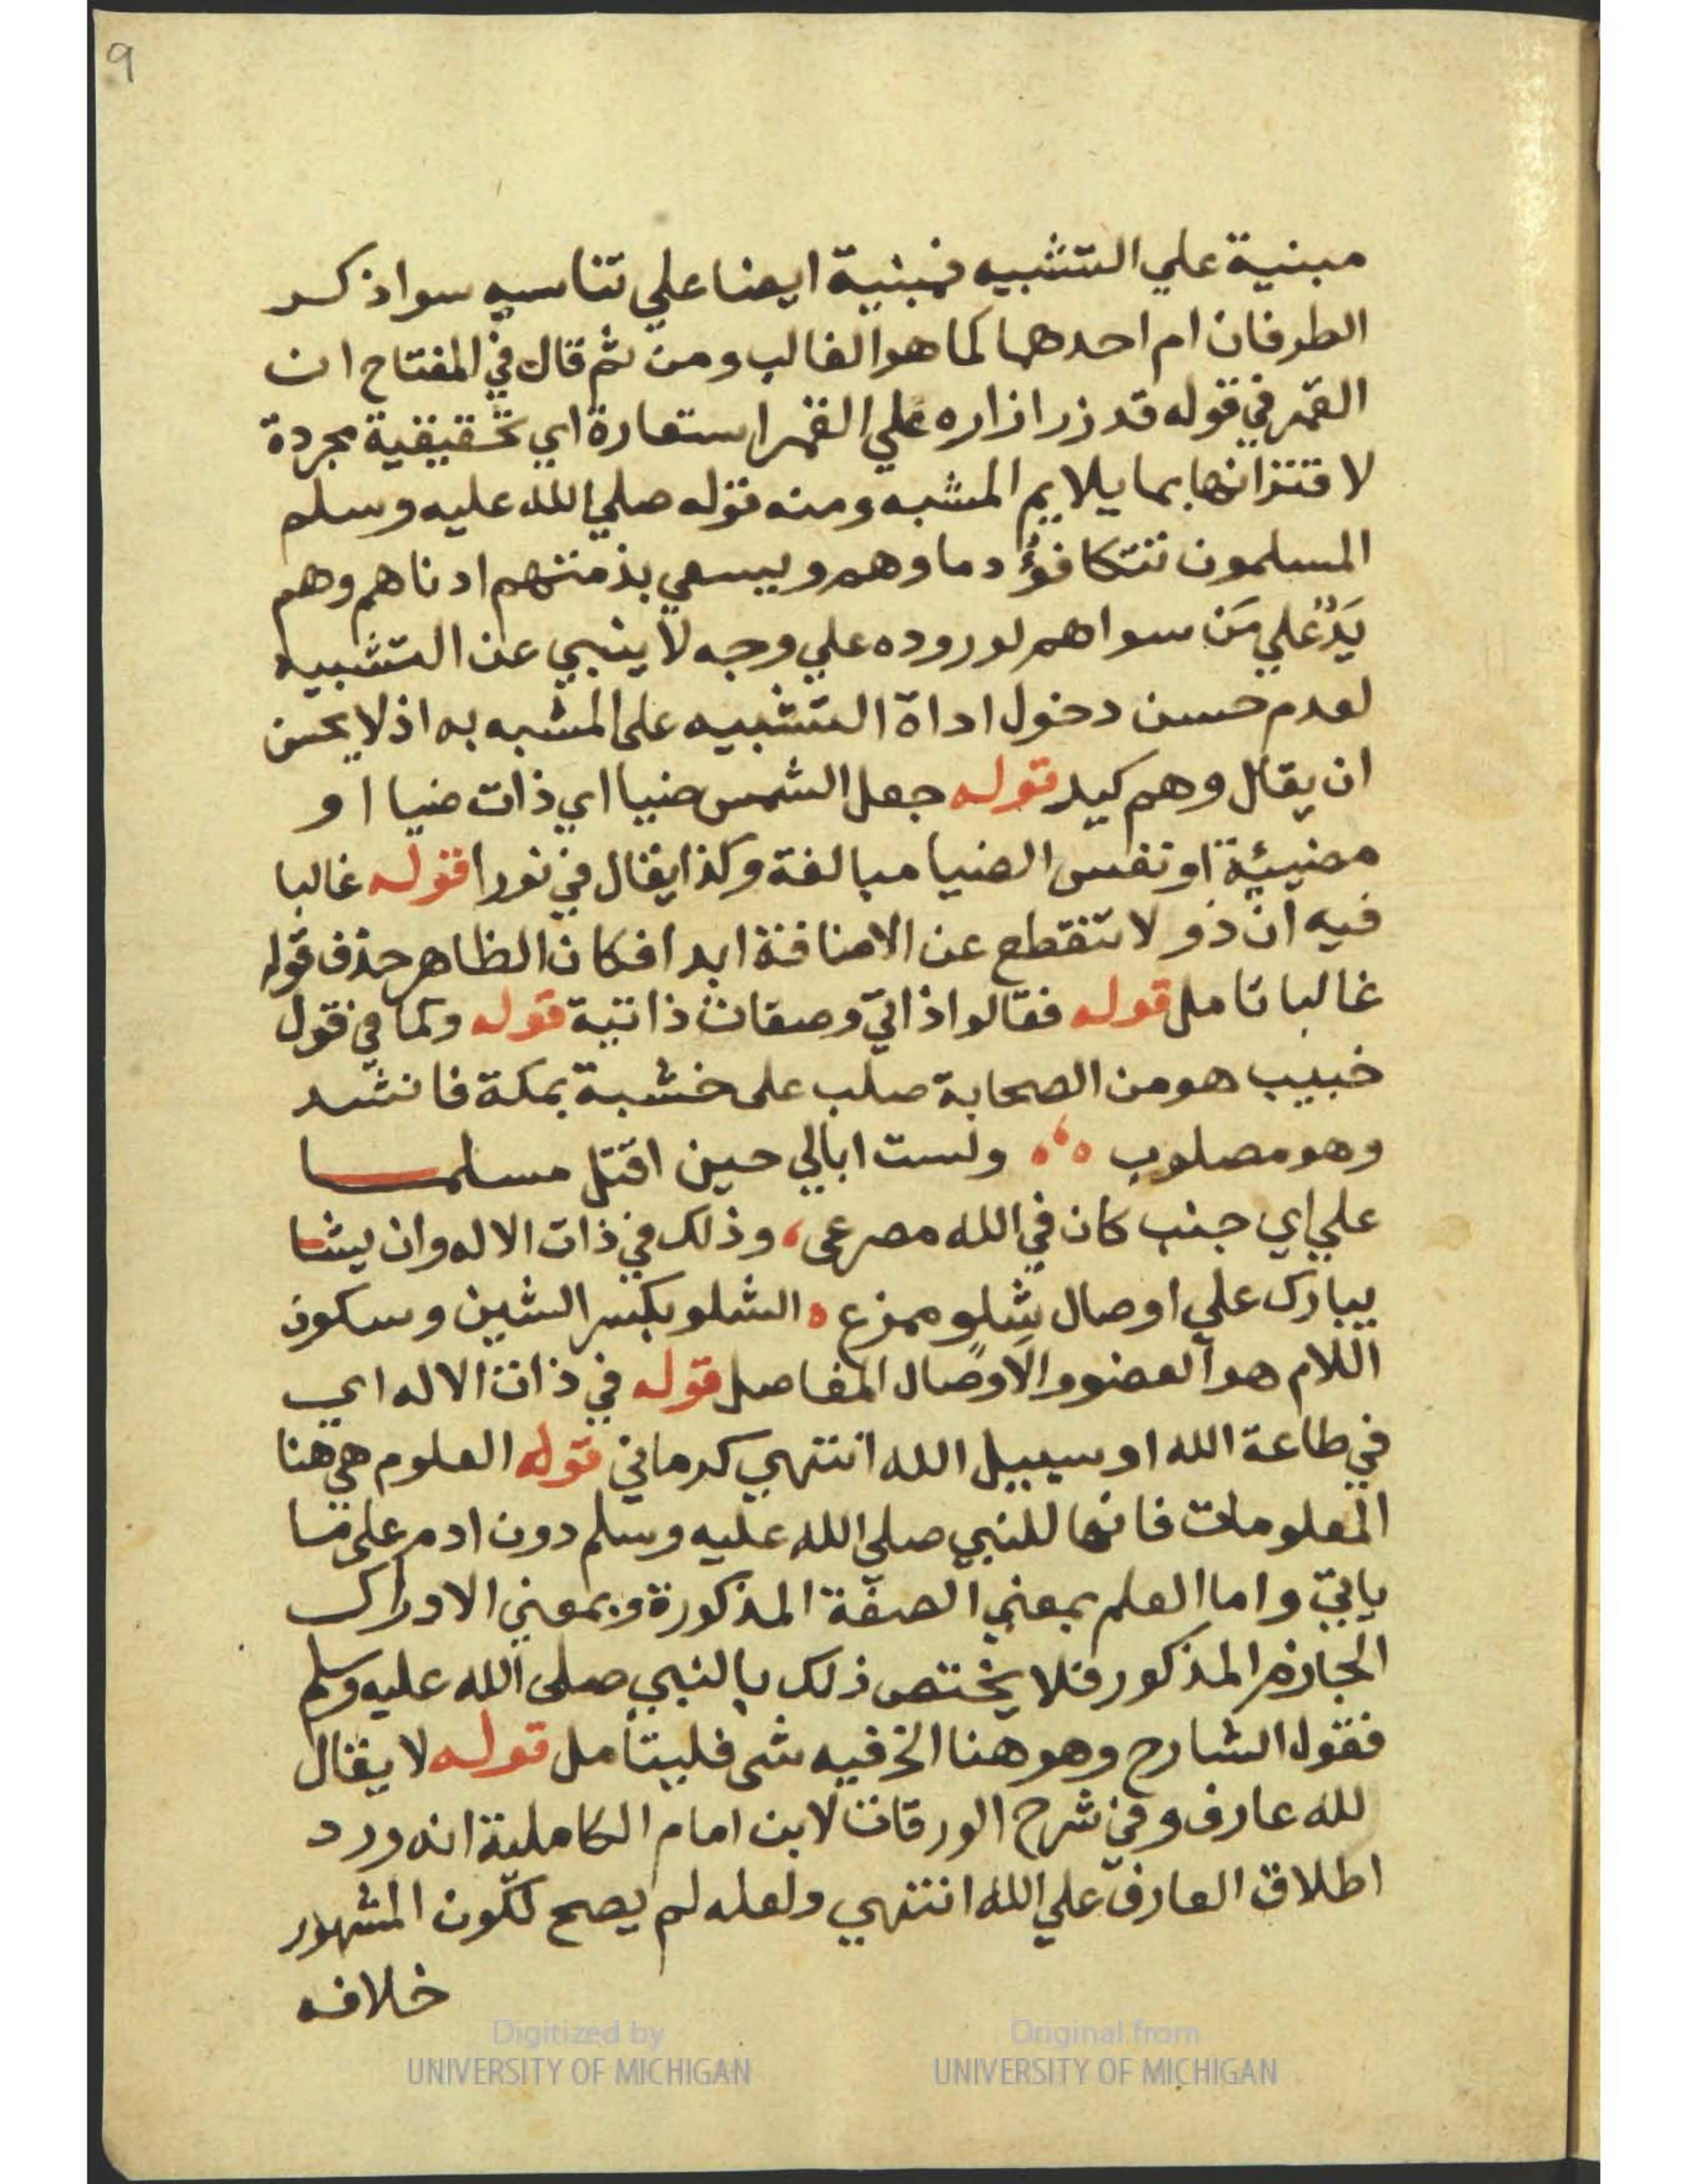 9
مبنية علي التشبيه فمبنية ايضا علي تناسيه سوا ذكر
الطرفان ام احدهما كما هو الغالب ومن ثم قال في المفتاح ان
القمر في قوله قد زر ازاره علي القمر استعارة اي تحقيقية مجردة
لاقترانها بما يلايم المشبه ومنه قوله صلي الله عليه وسلم
المسلمون تتكافؤ دماوهم ويسعي بذمتهم ادناهم وهم
يَدٌ علي مَن سواهم لوروده علي وجه لا ينبي عن التشبيه
لعدم حسن دخول اداة التشبيه على المشبه به اذ لا يحسن
ان يقال وهم كيد قوله جعل الشمس ضيا اي ذات ضيا او
مضيئة او نفس الضيا مبالغة وكذا يقال في نورا قوله غالبا
فيه ان ذو لا تنقطع عن الاضافة ابدا فكان الظاهر حذف قوله
غالبا تامل قوله فقالوا ذاتي وصفات ذاتية قوله وكما في قول
خبيب هو من الصحابة صلب على خشبة بمكة فانشد
وهو مصلوب ولست ابالي حين اقتل مسلما
علي اي جنب كان في الله مصرعى، وذلك في ذات الاله وان يشا
يبارك علي اوصال شِلو ممزع ه الشلو بكسر الشين وسكون
اللام هو العضو والاوصال المفاصل قوله في ذات الاله اي
في طاعة الله او سبيل الله انتهي كرماني قوله العلوم هي هنا
المعلومات فانها للنبي صلي الله عليه وسلم دون ادم على ما
ياتي واما العلم بمعني الصفة المذكورة وبمعني الادراك
الجازم المذكور فلا يختص ذلك بالنبي صلى الله عليه وسلم
فقول الشارح وهو هنا الخ فيه شى فليتامل قوله لا يقال
لله عارف وفي شرح الورقات لابن امام الكاملية انه ورد
اطلاق العارف علي الله انتهي ولعله لم يصح لكون المشهور
خلافه
Digitized by
UNIVERSITY OF MICHIGAN
Original from
UNIVERSITY OF MICHIGAN